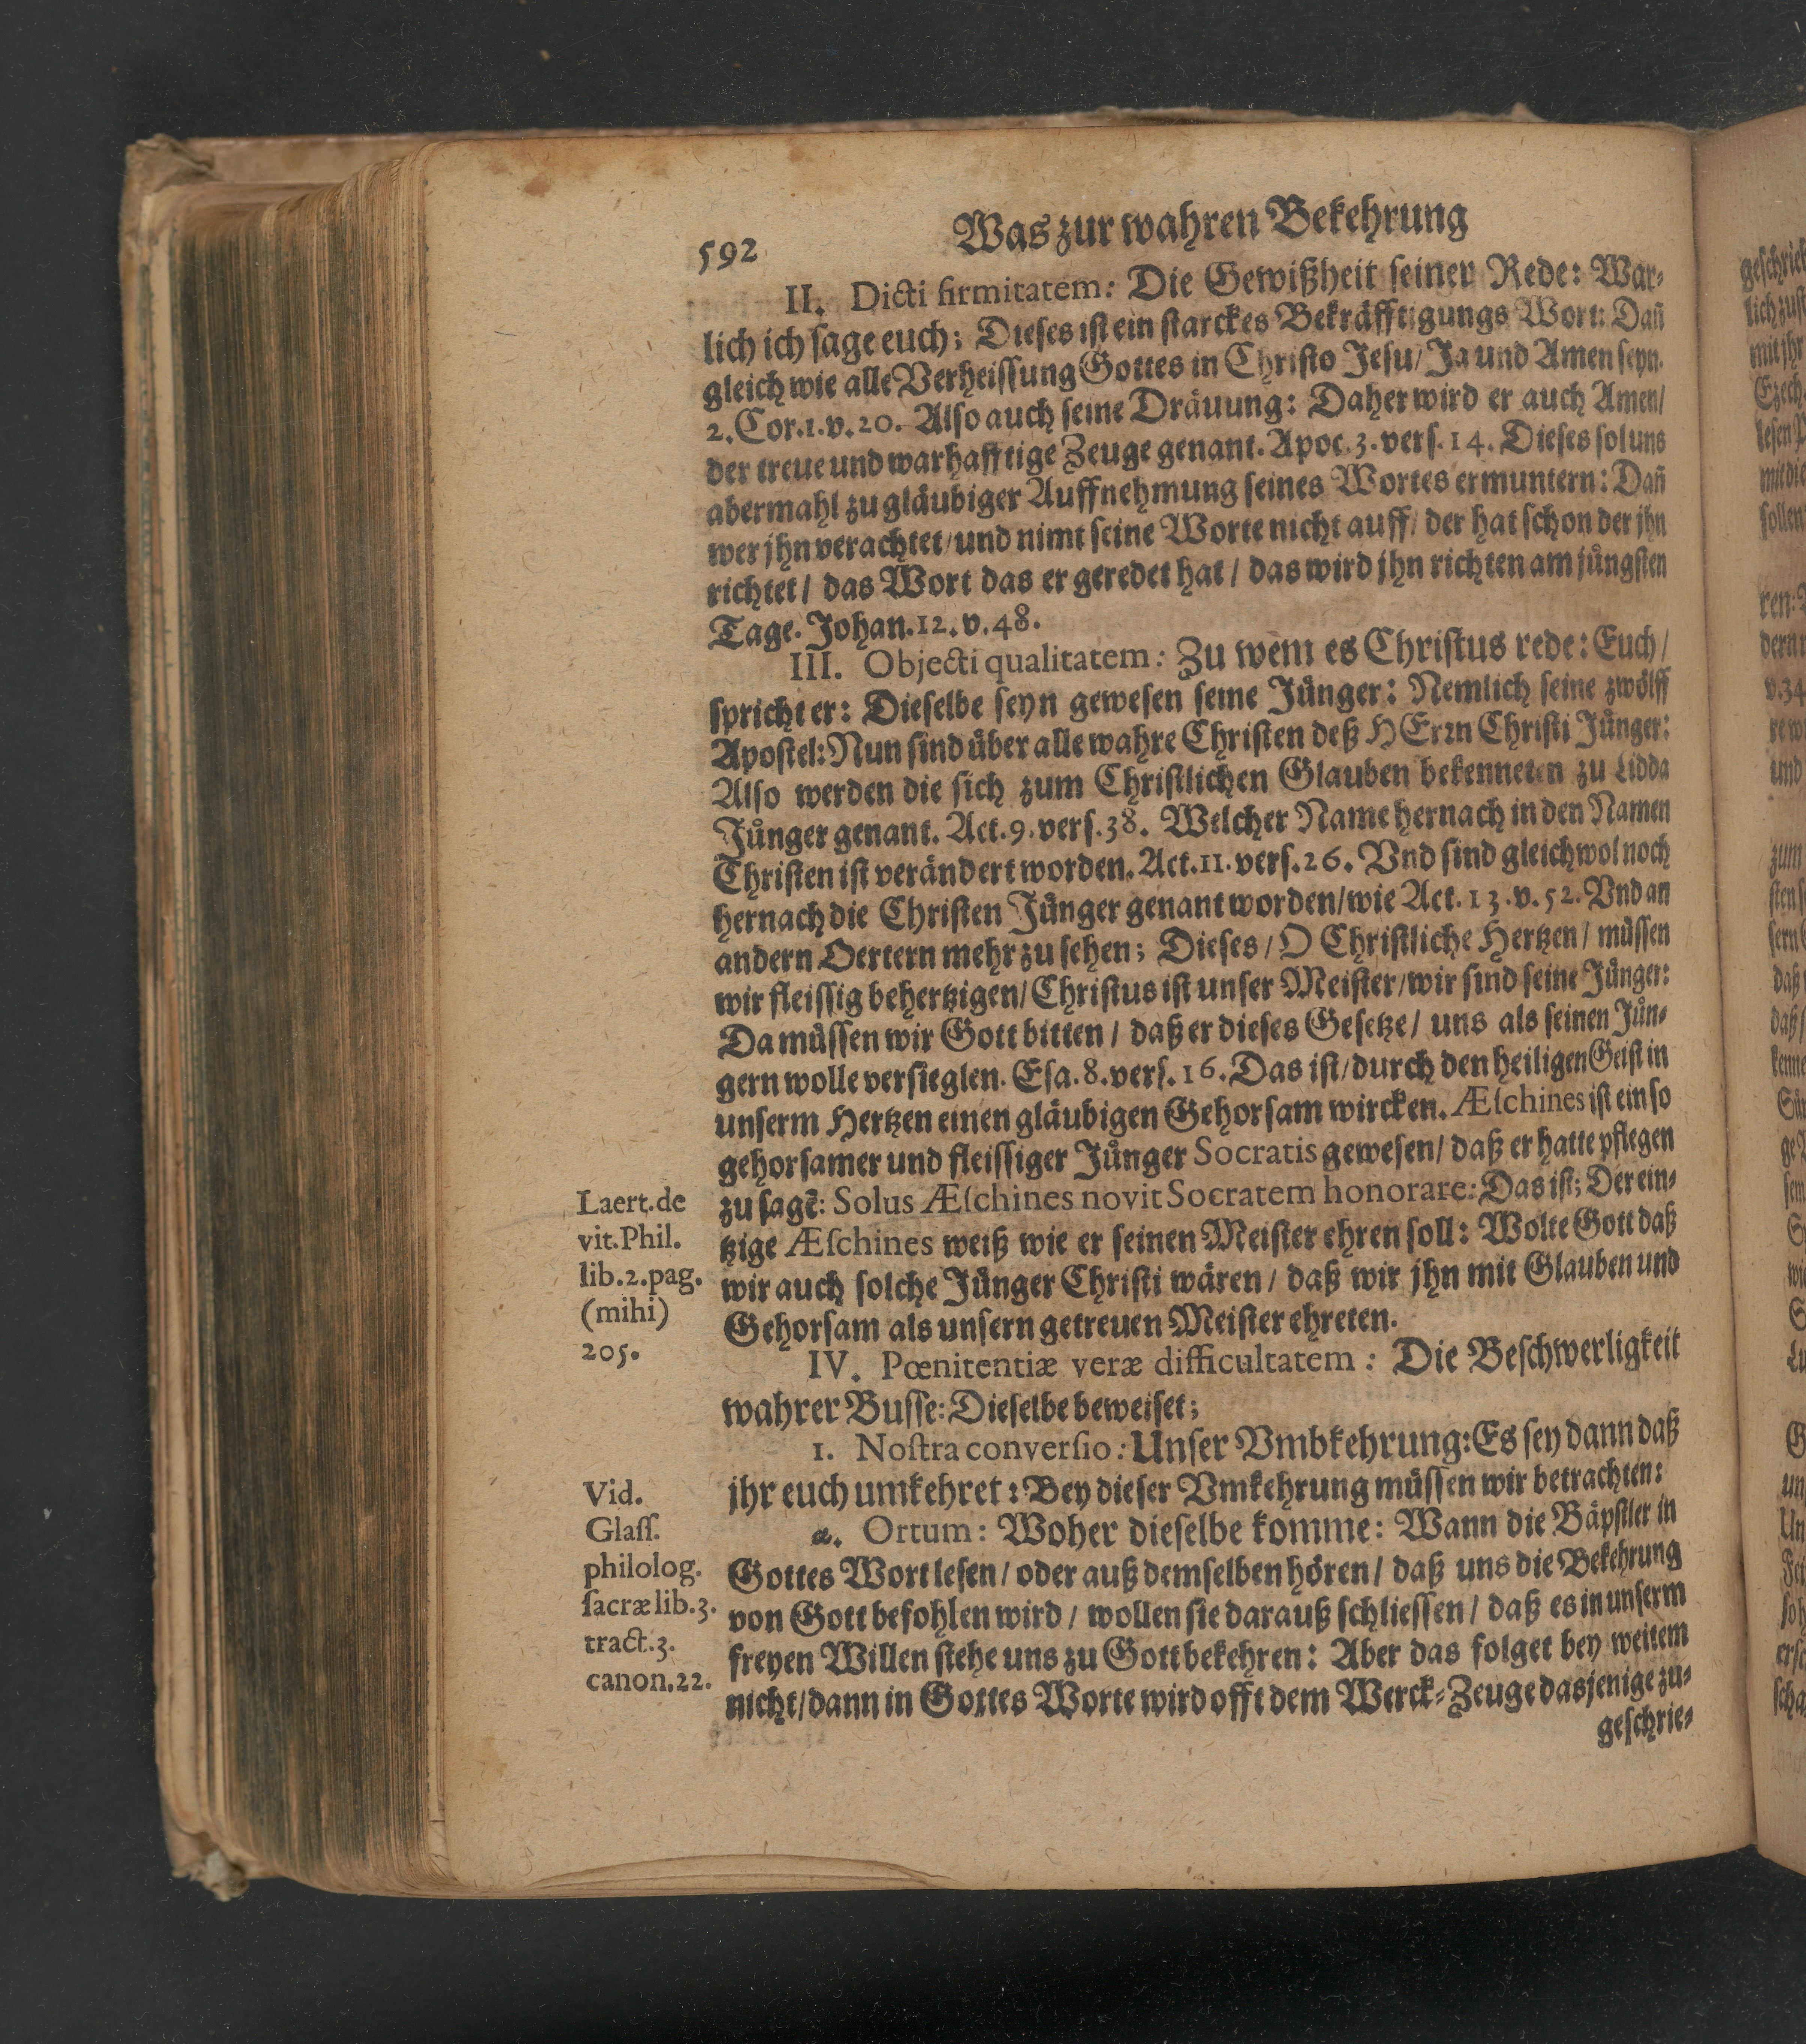 592
Was zur wahren Bekehrung
II. Dicti firmitatem: Die Gewißheit seiner Rede: War-
lich ich sage euch; Dieses ist ein starckes Bekräfftigungs Wort: Dañ
gleich wie alle Verheissung Gottes in Christo Jesu/ Ja und Amen seyn.
2. Cor. 1. v. 20. Also auch seine Dräuung: Daher wird er auch Amen/
der treue und warhafftige Zeuge genant. Apoc. 3. vers. 14. Dieses sol uns
abermahl zu gläubiger Auffnehmung seines Wortes ermuntern: Dañ
wer jhn verachtet/ und nimt seine Worte nicht auff/ der hat schon der jhn
richtet/ das Wort das er geredet hat/ das wird jhn richten am jüngsten
Tage. Johan. 12. v. 48.
III. Objecti qualitatem: Zu wem es Christus rede: Euch/
spricht er: Dieselbe seyn gewesen seine Jünger: Nemlich seine zwölff
Apostel: Nun sind über alle wahre Christen deß HErꝛn Christi Jünger:
Also werden die sich zum Christlichen Glauben bekenneten zu Lidda
Jünger genant. Act. 9. vers. 38. Welcher Name hernach in den Namen
Christen ist verändert worden. Act. 11. vers. 26. Vnd sind gleichwol noch
hernach die Christen Jünger genant worden/ wie Act. 13. v. 52. Vnd an
andern Oertern mehr zu sehen; Dieses/ O Christliche Hertzen/ müssen
wir fleissig behertzigen/ Christus ist unser Meister/ wir sind seine Jünger:
Da müssen wir Gott bitten/ daß er dieses Gesetze/ uns als seinen Jün-
gern wolle versieglen. Esa. 8. vers. 16. Das ist/ durch den heiligen Geist in
unserm Hertzen einen gläubigen Gehorsam wircken. Æschines ist ein so
gehorsamer und fleissiger Jünger Socratis gewesen/ daß er hatte pflegen
zu sagẽ: Solus Æschines novit Socratem honorare: Das ist; Der ein-
tzige Æschines weiß wie er seinen Meister ehren soll: Wolte Gott daß
wir auch solche Jünger Christi wären/ daß wir jhn mit Glauben und
Gehorsam als unsern getreuen Meister ehreten.
Laert. de
vit. Phil.
lib. 2. pag.
(mihi)
205.
IV. Pœnitentiæ veræ difficultatem: Die Beschwerligkeit
wahrer Busse: Dieselbe beweiset;
1. Nostra conversio: Unser Vmbkehrung: Es sey dann daß
jhr euch umkehret: Bey dieser Vmkehrung müssen wir betrachten:
α. Ortum: Woher dieselbe komme: Wann die Bäpstler in
Gottes Wort lesen/ oder auß demselben hören/ daß uns die Bekehrung
von Gott befohlen wird/ wollen sie darauß schliessen/ daß es in unserm
freyen Willen stehe uns zu Gott bekehren: Aber das folget bey weitem
nicht/ dann in Gottes Worte wird offt dem Werck-Zeuge dasjenige zu-
geschrie-
Vid.
Glass.
philolog.
sacræ lib. 3.
tract. 3.
canon. 22.